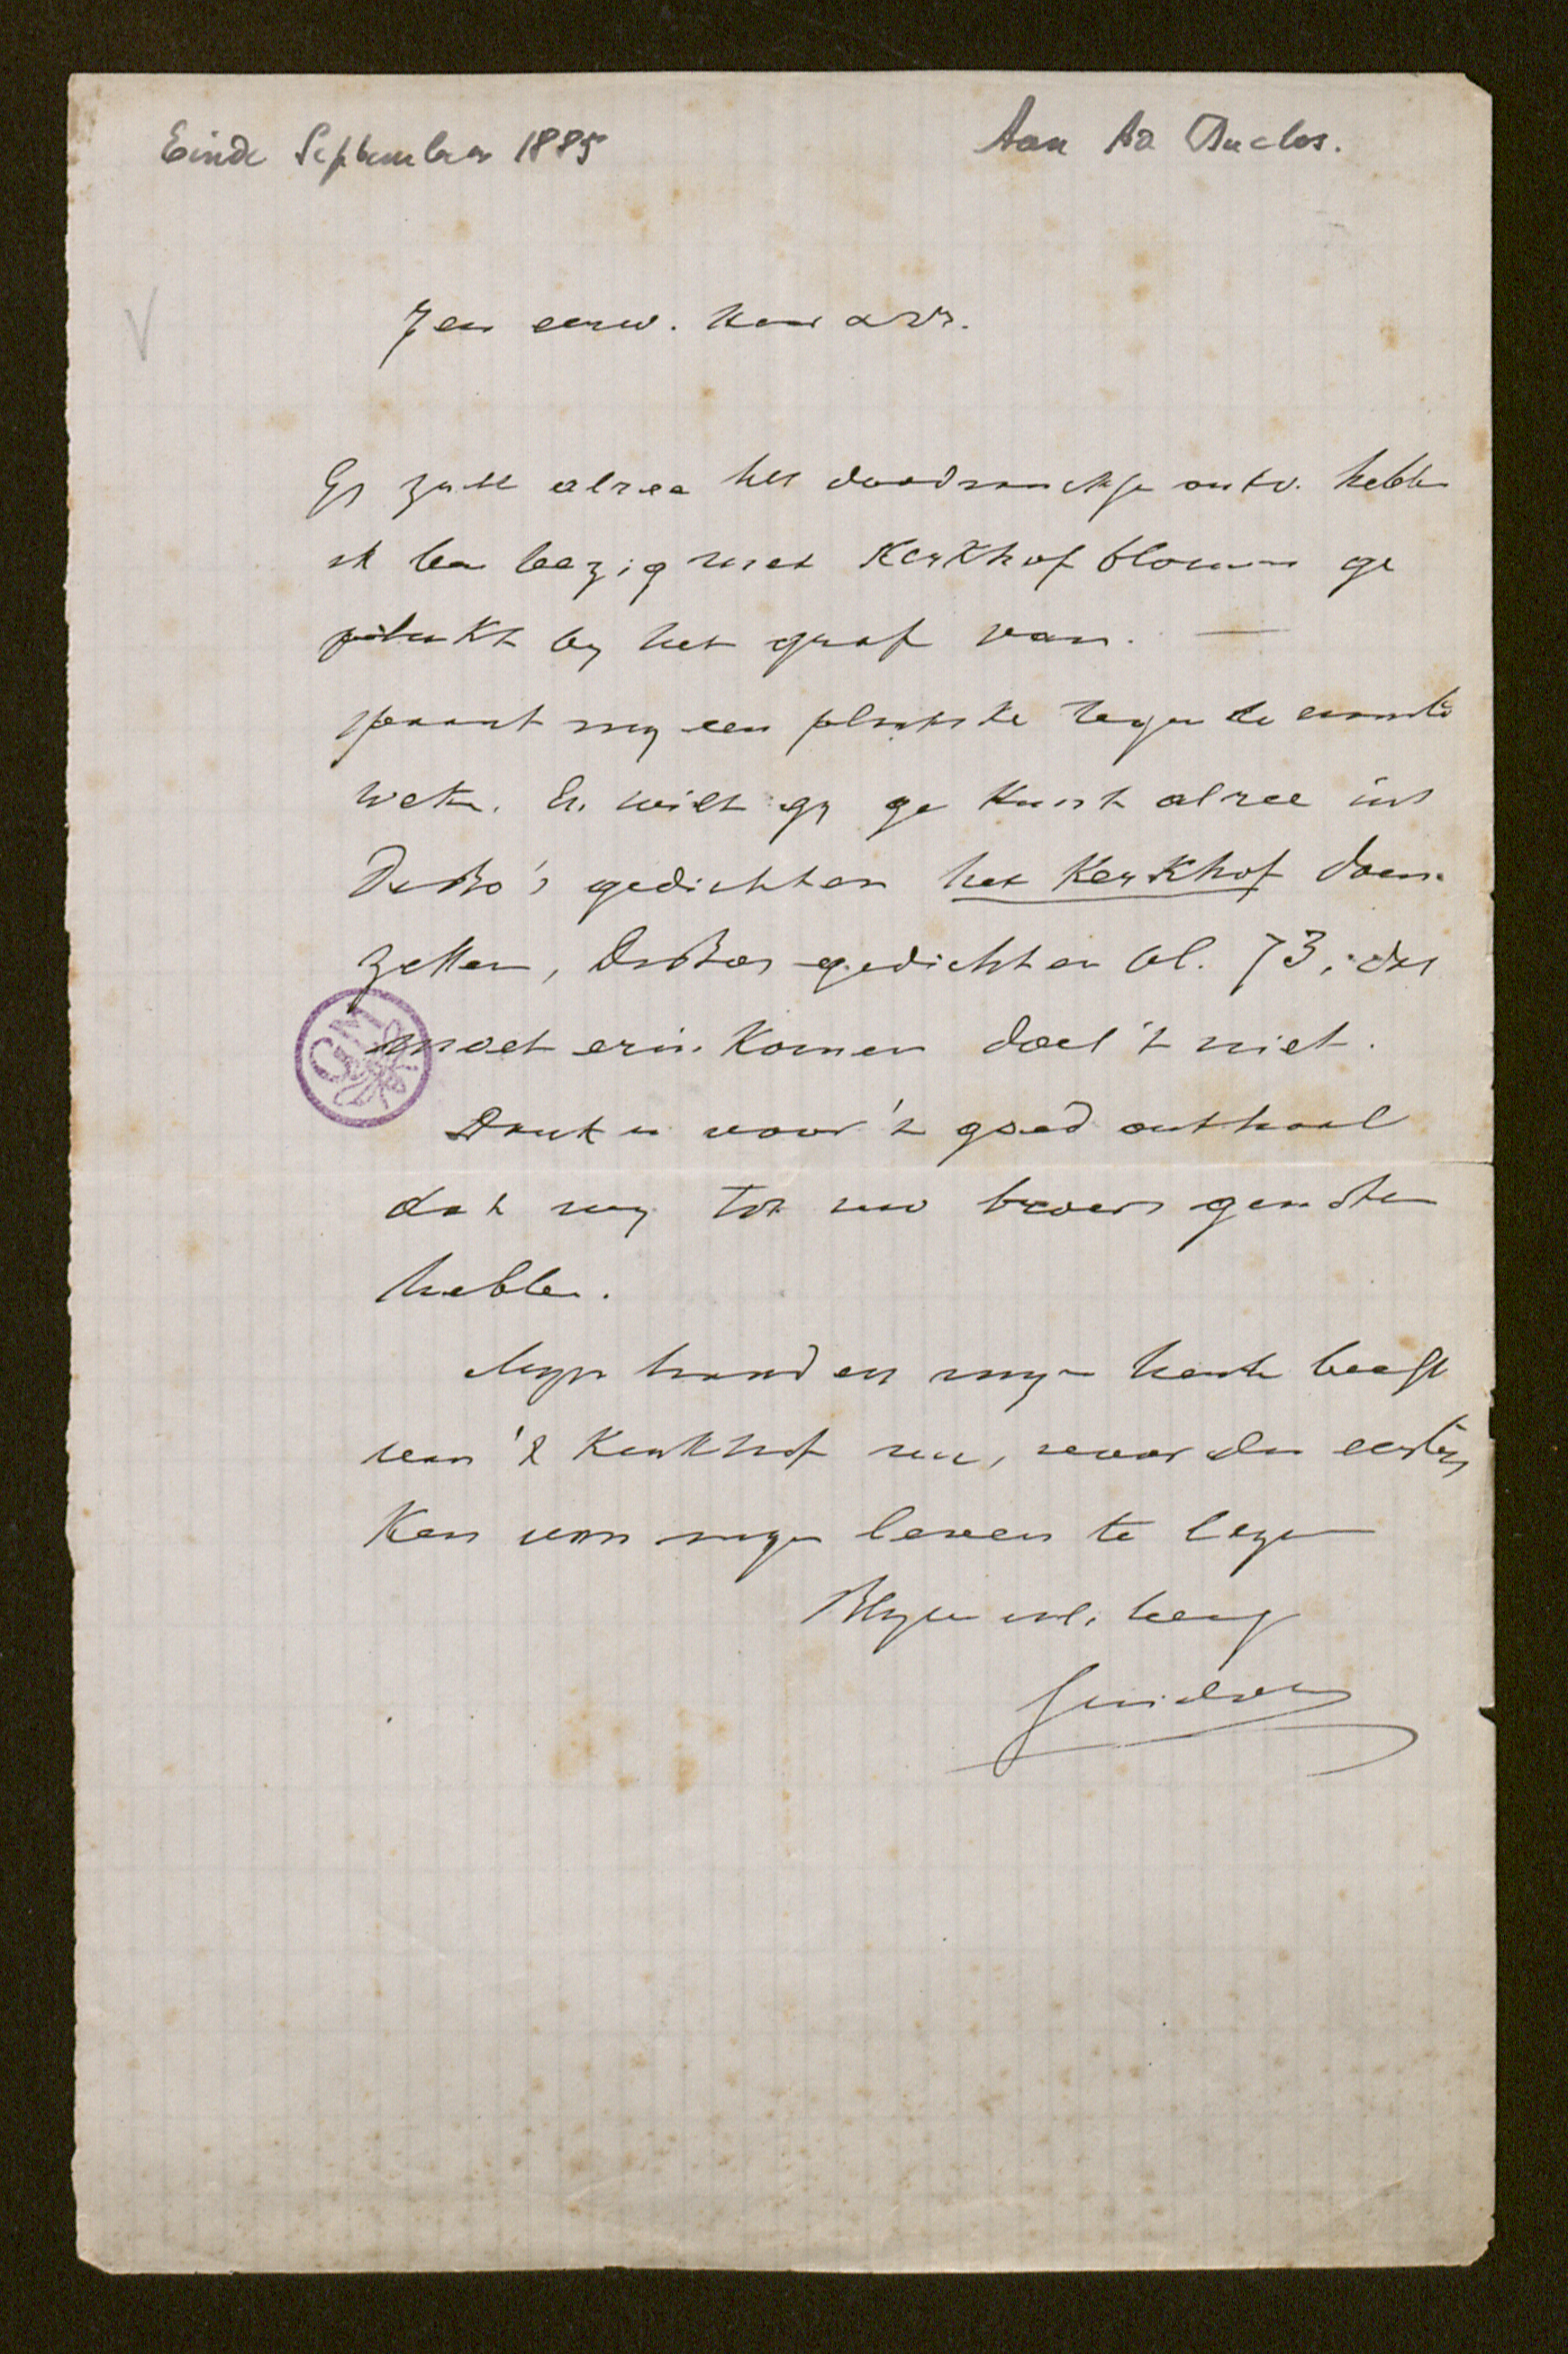 Einde September 1885
Aan Ad Duclos.
Zeer eerw. heer
Gy zult alree het doodsanctje ontv. hebben
ik ben bezig met Kerkhofblommen ge
plukt by het graf van. —
spaart my een plaatske tegen de eerste
weke. En wilt gy ge kunt alree uit
DeBo's gedichten het Kerkhof doen
zetten, DeBoos gedichten bl. 73, dat
moet erin komen doe 't niet.
Dank u voor 't goed onthaal
dat wy tot uw broers genoten
hebben.
Myn hand en myn herte beeft
van 't Kerkhof nu, voor den eersten
Keer van myn leven te lezen
Blyve
Guido
GGM